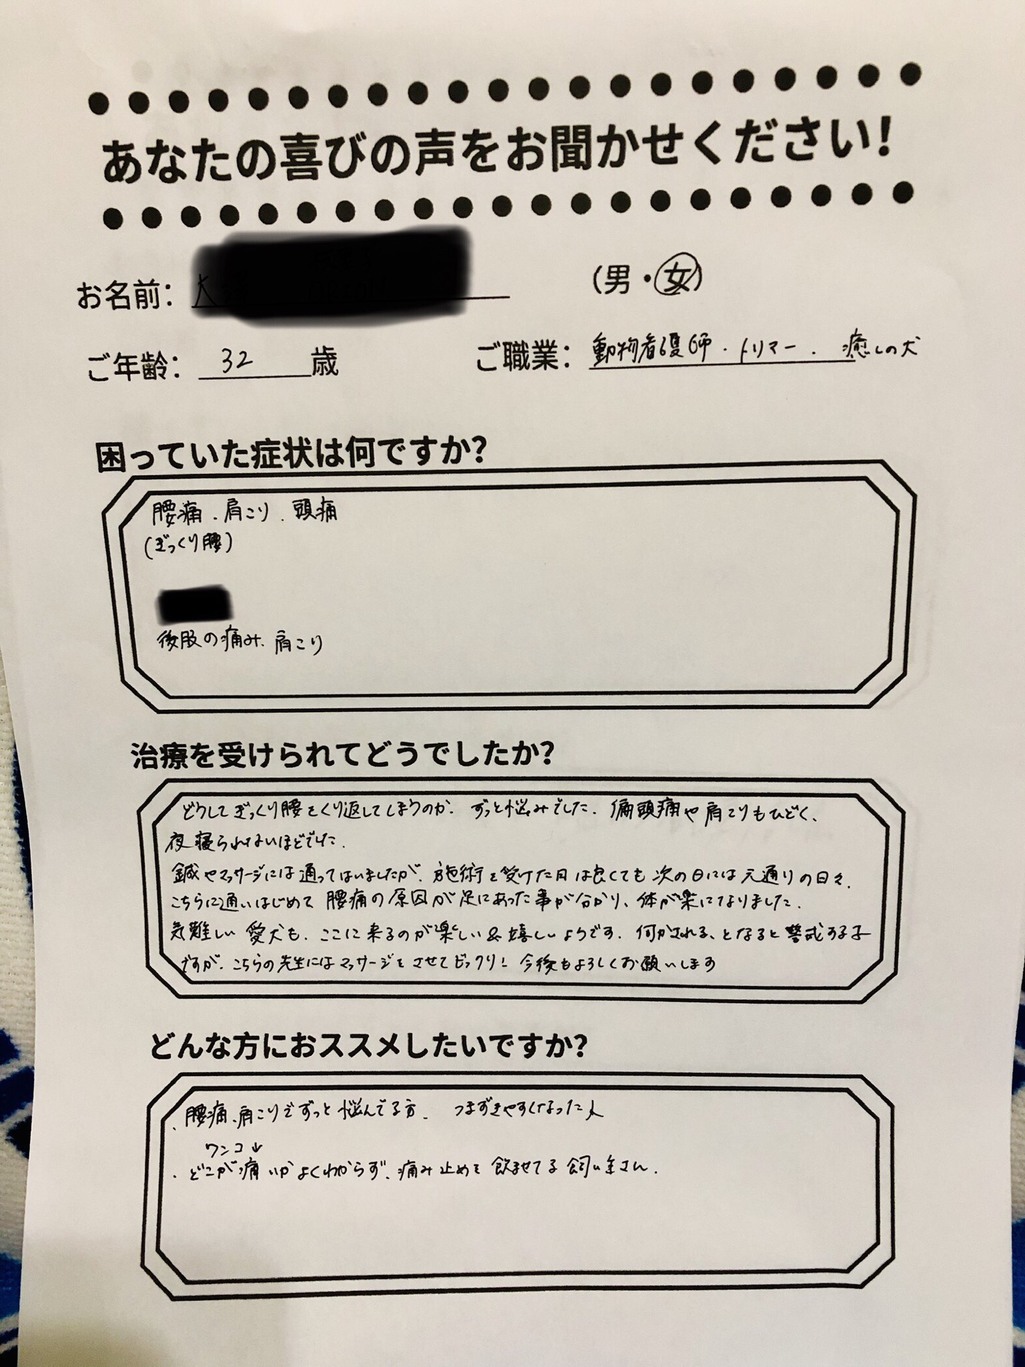 あなたの喜びの声をお聞かせください!
お名前: (男・女)
ご年齢: 32 歳 ご職業: 動物看護師・トリマー. 癒しの犬
困っていた症状は何ですか?
腰痛.肩こり.頭痛
(ぎっくり腰)
後肢の痛み.肩こり
治療を受けられてどうでしたか?
どうしてぎっくり腰をくり返してしまうのか.ずっと悩みでした.偏頭痛や肩こりもひどく、
夜寝られないほどでした.
鍼やマッサージには通ってはいましたが.施術を受けた日は良くても次の日には元通りの日々.
こちらに通いはじめて腰痛の原因が足にあった事が分かり、体が楽になりました.
気難しい愛犬も.ここに来るのが楽しい&嬉しいようです.何かされる、となると警戒する子
ですが.こちらの先生にはマッサージをさせてビックリ!今後もよろしくお願いします
どんな方におススメしたいですか?
.腰痛.肩こりでずっと悩んでる方. つまずきやすくなった人
ワンコ↓
.どこが痛いかよくわからず.痛み止めを飲ませてる飼い主さん.